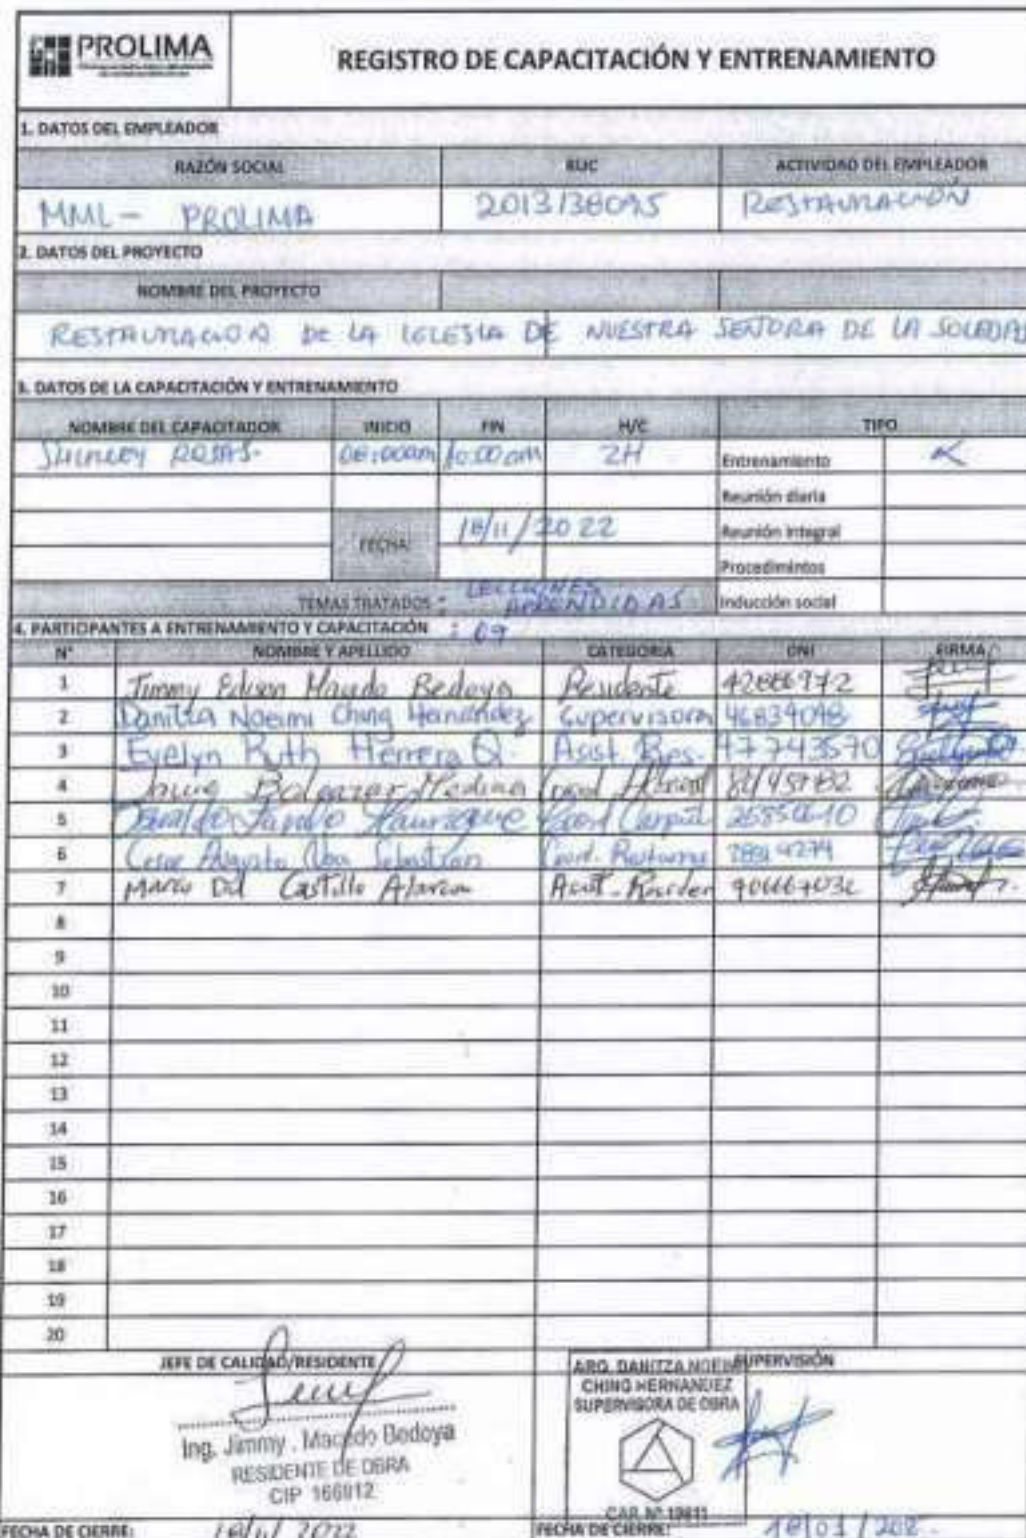 PROLIMA
REGISTRO DE CAPACITACIÓN Y ENTRENAMIENTO
1. DATOS DEL EMPLEADOR
RAZÓN SOCIAL RUC ACTIVIDAD DEL EMPLEADOR
MML - PROLIMA 2013138095 RESTAURACIÓN
2. DATOS DEL PROYECTO
NOMBRE DEL PROYECTO
RESTAURACION DE LA IGLESIA DE NUESTRA SEÑORA DE LA SOLEDAD
3. DATOS DE LA CAPACITACIÓN Y ENTRENAMIENTO
NOMBRE DEL CAPACITADOR INICIO FIN H/C TIPO
ROJAS 08:00am 10:00am 2H Entrenamiento
Reunión diaria
FECHA: 18/11/2022 Reunión Integral
Procedimintos
TEMAS TRATADOS : LECCIONES APRENDIDAS Inducción social
4. PARTICIPANTES A ENTRENAMIENTO Y CAPACITACIÓN : 07
N° NOMBRE Y APELLIDO CATEGORIA DNI FIRMA
1 Jimmy Edison Macedo Bedoya Residente 42886972
2 Danitza Noeimi Ching Hernández Supervisora 46839098
3 Evelyn Ruth Herrera Q. Asist. Res. 47743570
4 Medina
5
6 Cesar Augusto Sebastian
7 Marco Del Castillo Alarcon
8
9
10
11
12
13
14
15
16
17
18
19
20
JEFE DE CALIDAD/RESIDENTE SUPERVISIÓN
Ing. Jimmy . Macedo Bedoya
RESIDENTE DE OBRA
CIP 166912
ARQ. DANITZA NOEIMI
CHING HERNANDEZ
SUPERVISORA DE OBRA
CAP. N° 19611
FECHA DE CIERRE: 18/11/2022 FECHA DE CIERRE: